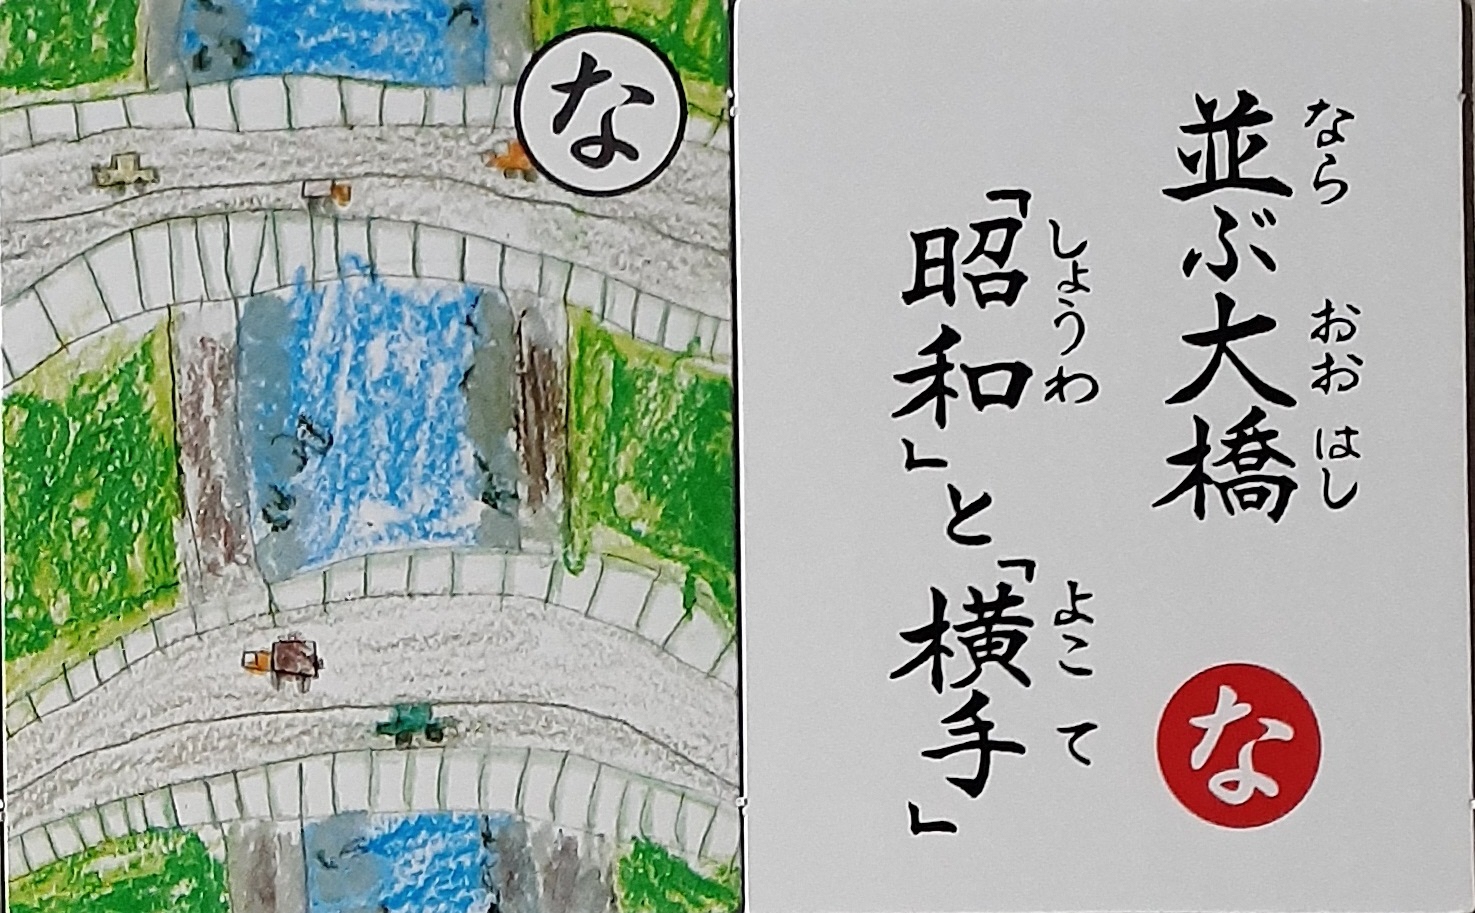 な
並ぶ大橋
なら おおはし
「昭和」と「横手」
しょうわ よこて
な